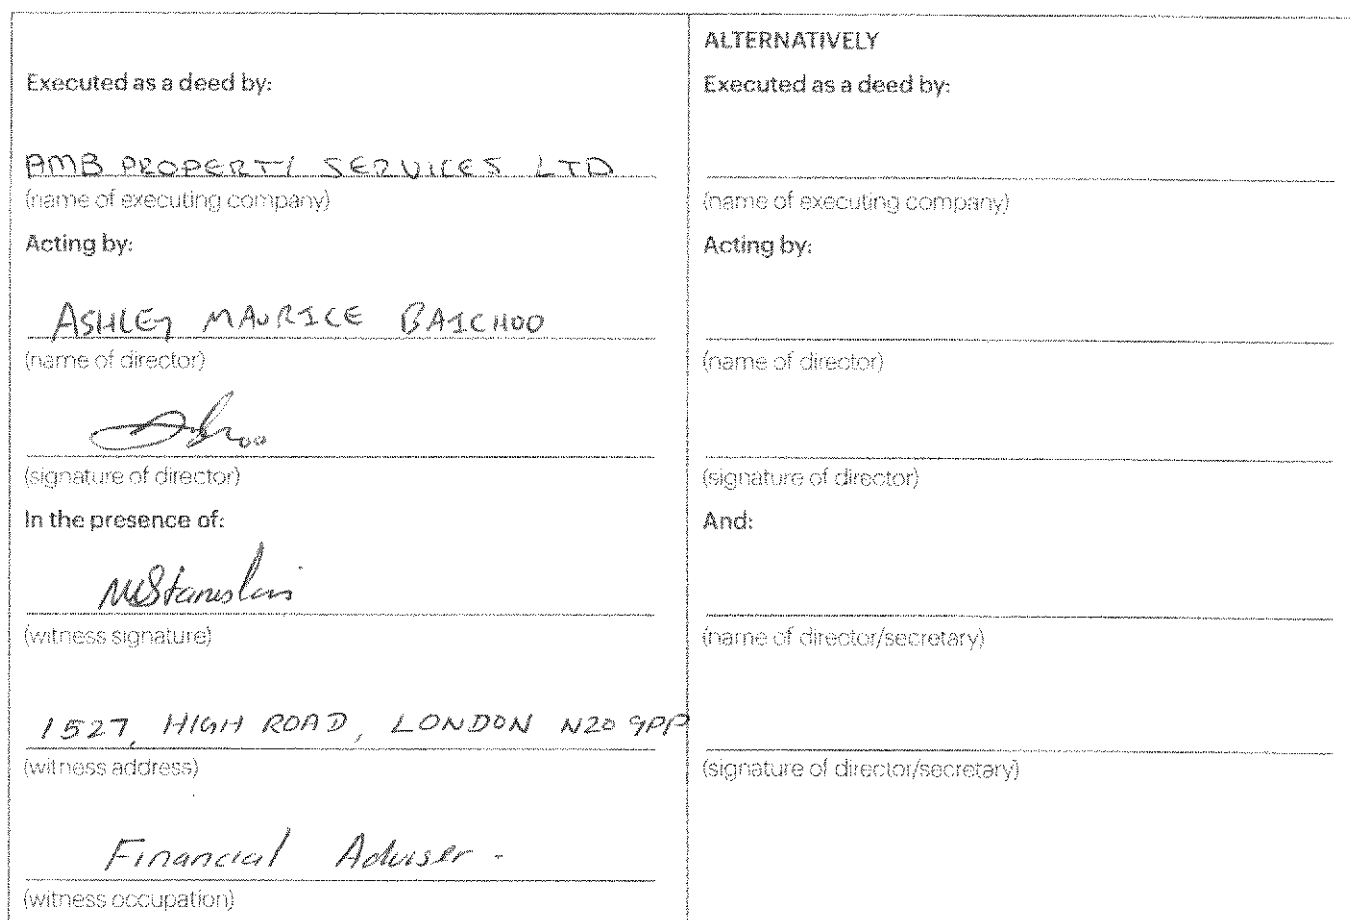 Executed as a deed by:
AMB PROPERTY SERVICES LTD
(name of executing company)
Acting by:
ASHLEY MAURICE BAICHOO
(name of director)
(signature of director)
In the presence of:
(witness signature)
1527, HIGH ROAD, LONDON N20 9PP
(witness address)
Financial Adviser -
(witness occupation)
ALTERNATIVELY
Executed as a deed by:
(name of executing company)
Acting by:
(name of director)
(signature of director)
And:
(name of director/secretary)
(signature of director/secretary)